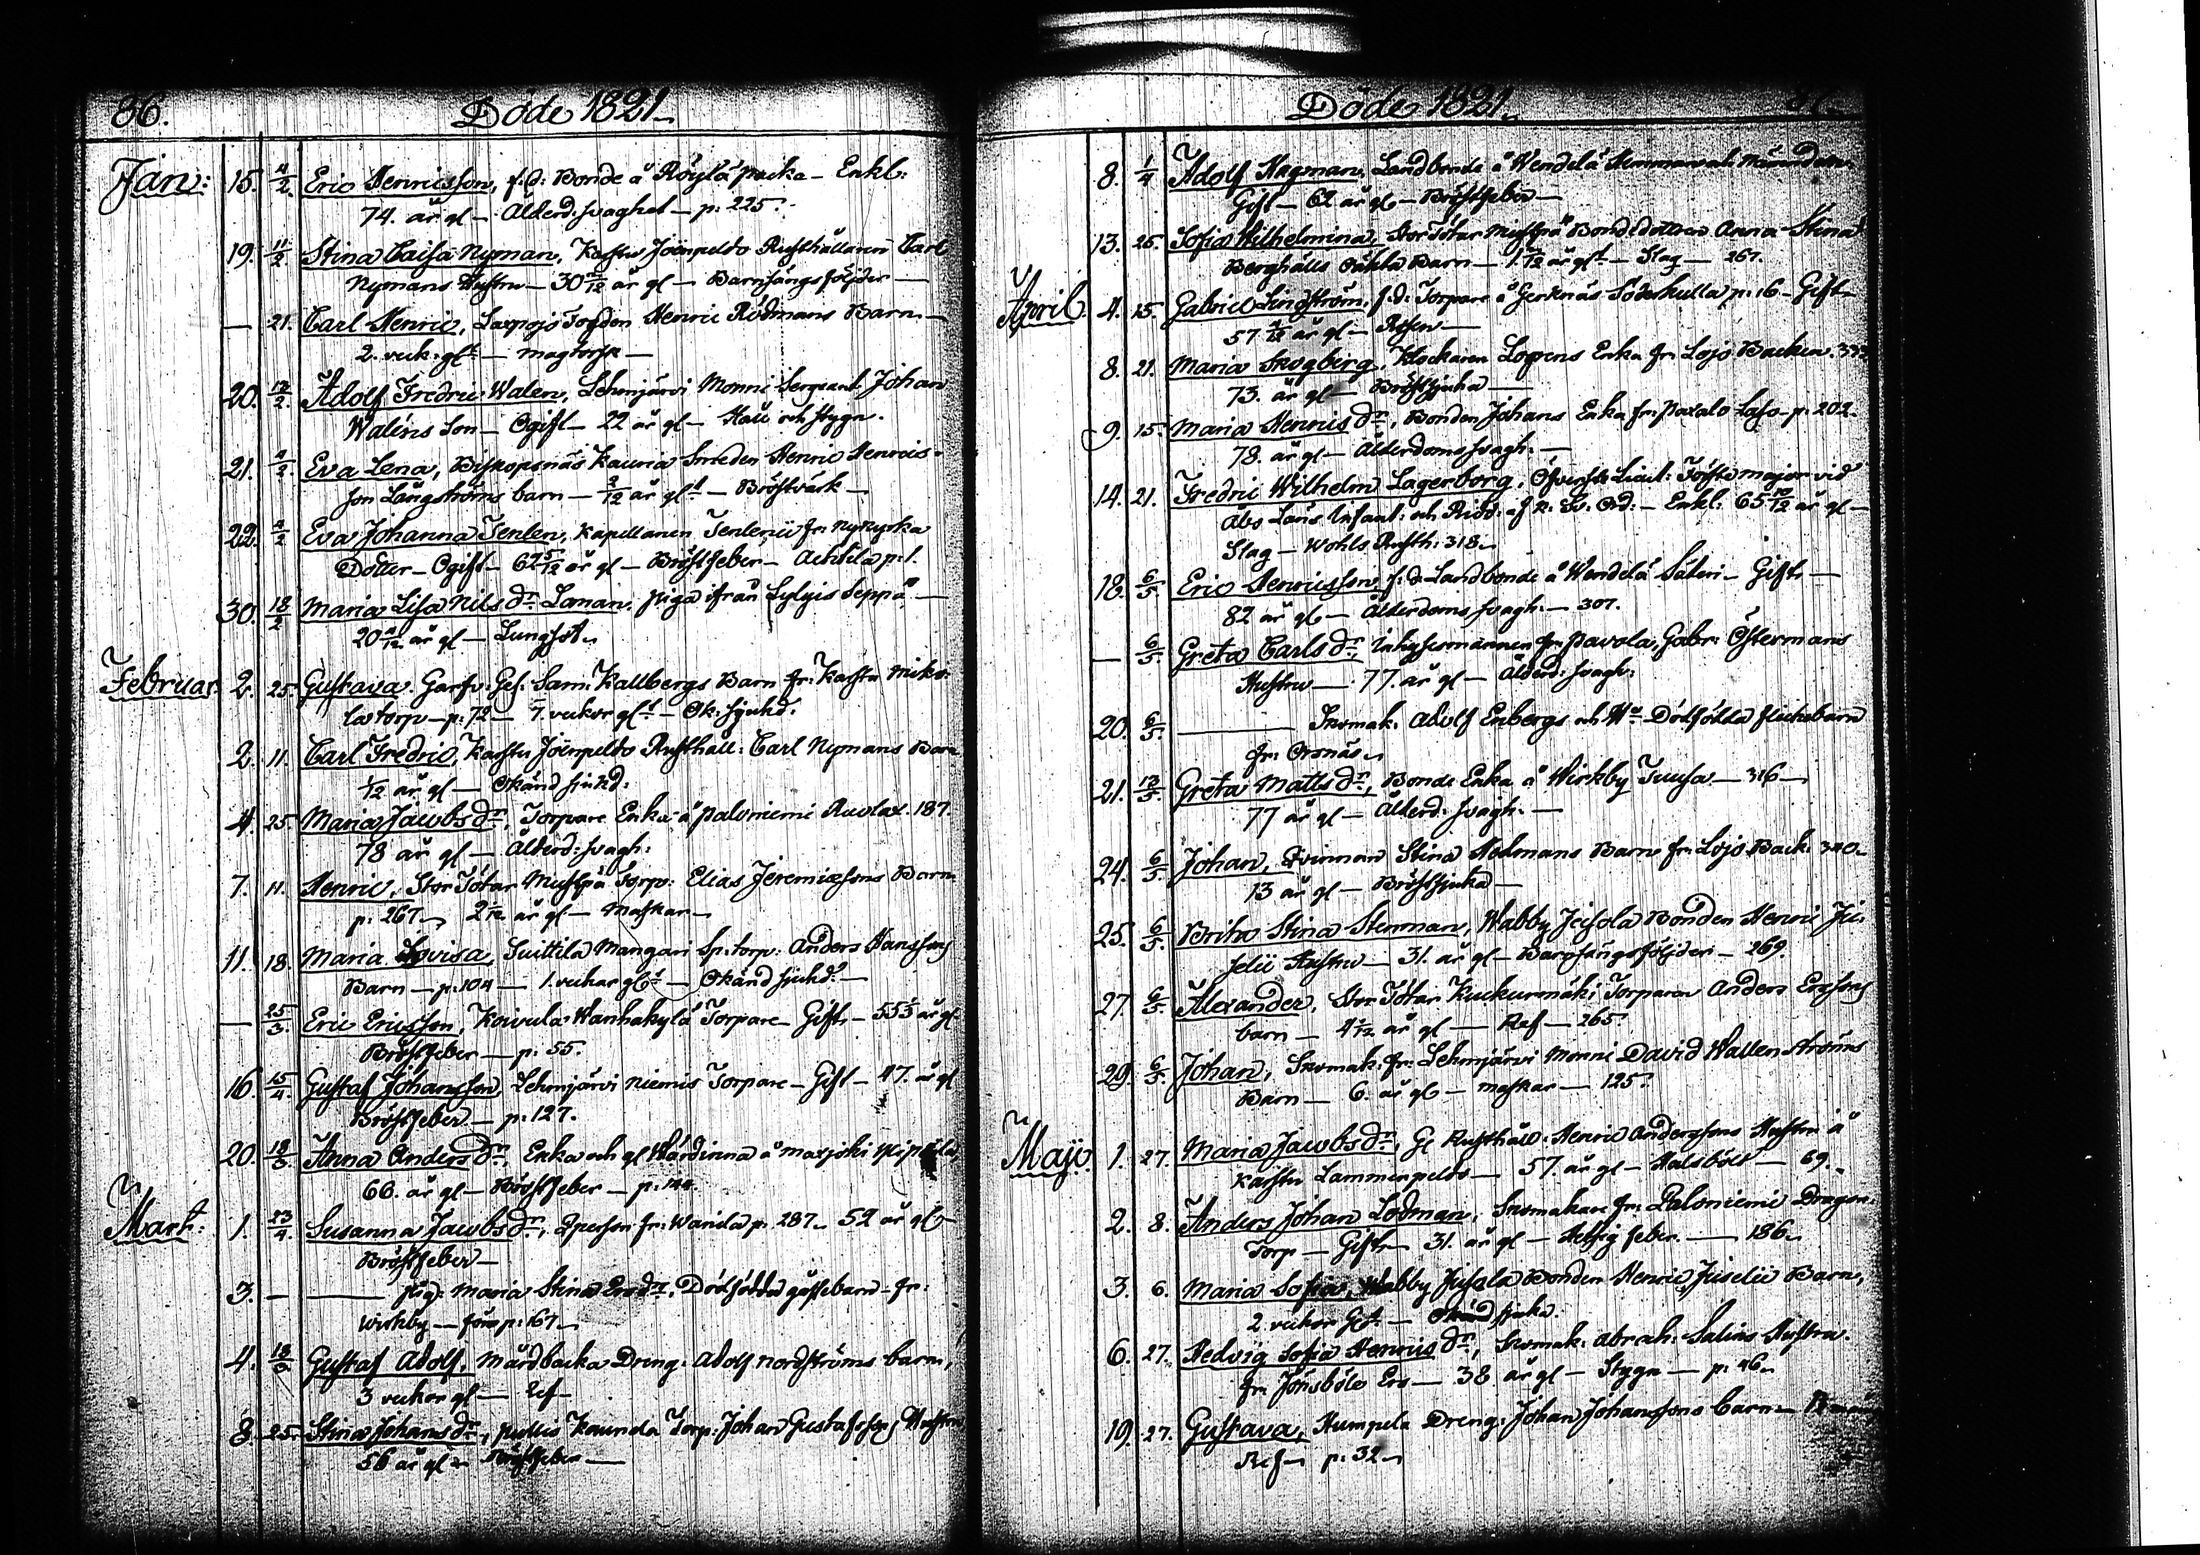 86. Döde 1821.
Jan: 15. 4/2 Eric Henricsson, f.d. Bonde å Röylä packa - Enkl:
74. år gl - Ålderd: svaghet - p: 225.
19. 11/2 Stina Caisa Nyman, Karstu Jöenpeldo Rusthållaren Carl
Nymans Hustru - 30 /12 år gl - Barnsängsföljder -
- 21. Carl Henric, Laxpojo Torpden Henric Rödmans Barn -
2. veck: glt - magtorsk -
20. 12/2 Adolf Fredric Walen, Lehmjärvi Monni Sergeant Johan
Walens Son - Ogift - 22 år gl - Håll och stygn.
21. 4/2 Eva Lena, Biskopsnäs Kauria Smeden Henric Henrics-
son Långströms barn - 2/12 år glt - Bröstvärk -
22. 4/2 Eva Johanna Tenlen, Kapellanen Tenlenii fr: Nykyrka
Dotter - Ogift - 62 5/12 år gl - Bröstfeber - p: 1.
30. 18/2 Maria Lisa Nils dr Lanan, piga ifrån Lylyis Seppä -
20 /12 år gl - Lungsot.
Februar. 2. 25. Gustava. Garfv: Ges: Sam: Kallbergs Barn fr: Karstu Niko-
las torp - p: 72 - 7. veckor glt - Ok: sjukd:
2. 11. Carl Fredric, Karstu Jöenpeldo Rusthåll: Carl Nymans Barn
1/12 år gl - Okänd sjukd:
4. 25. Maria Jacobs dr, Torpare Enka å Paloniemi Ruolax. 187.
78 år gl - Ålderd: svagh:
7. 11. Henric, Stor Tötar Mustpä Torp: Elias Jeremiassons Barn
p: 267. 2 /12 år gl - Maskar -
11. 18. Maria Lovisa, Suittila Mangari Sp: torp: Anders Hanssons
Barn - p: 104 - 1. veckor glt - Okänd sjukd: -
- 25/3. Eric Ericsson, Koivula Wanhakylä Torpare - Gift - 55 år gl
Bröstfeber - p: 55.
16. 15/4. Gustaf Johansson, Lehmjärvi Niemis Torpare - Gift - 47. år gl
Bröstfeber - p: 127.
20. 18/3. Anna Anders dr, Enka och gl Wärdinna å Maxjoki
66. år gl - Bröstfeber - p: 144.
Mart: 1. 23/4 Susanna Jacobs dr, Qperson fr: Wanda p: 287. 52 år gl -
Bröstfeber -
3. - Pig: Maria Stina Ers dr, Dödfödda gossebarn - fr:
Wirkby - p: 167.
4. 18/3 Gustaf Adolf, Mårdbacka Dreng: Adolf Nordströms barn,
3 veckor gl - Ref -
8. 25. Stina Johans dr, Pullis Kaunola Torp: Johan Gustafssons Hustru
56 år gl - Bröstfeber -
Döde 1821.
8. 1/4 Adolf Hagman, Landbonde å Wendelä
Gift - 62 år gl - Bröstfeber -
13. 25. Sofia Wilhelmina, Stor Tötar Mustpä Bondedottren Anna Stina
Berghälls oäkta Barn - 1 /12 år glt - Slag - 267.
April. 4. 15. Gabriel Lindström, f.d. Torpare å Gerknäs Söderkulla p: 16 - Gift -
57 /12 år gl - Rosen -
8. 21. Maria Skogberg, Klockaren Logrens Enka fr: Lojo Backen.
73. år gl - Bröstsjuka -
9. 15. Maria Henrics dr, Bonden Johans Enka fr: Paxalo Laso - p: 202.
78. år gl - Ålderdomssvagh: -
14. 21. Fredric Wilhelm Lagerborg, Öfverste Lieut:
Åbo Läns Infant: och Ridd: af K: Sv: Ord: - Enkl: 65 10/12 år gl -
Slag - Wohls Rusth: 318.
18. 6/5. Eric Henricsson f.d. Landbonde å Wendelä Säteri - Gift -
82 år gl - Ålderdomssvagh: - 307.
- 6/5. Greta Carls dr, Inhysesmannen fr: Pavola, Gabr: Östermans
Hustru - 77. år gl - Ålderd: svagh:
20. 6/5. Skomak: Adolf Enbergs och Dödfödda flickebarn
fr: Orsnäs.
21. 13/5. Greta Matts dr, Bonde Enka å Wirkby Juusa - 316 -
77 år gl - Ålderd: svagh: -
24. 6/5. Johan, Qvinnan Stina Holmans Barn fr: Lojo Back: 340.
13 år gl - Bröstsjuka -
25. 6/5. Brita Stina Stenman, Wabby Jussola Bonden Henric Jus-
selii Hustru - 31. år gl - Barnsängsföljder - 269.
27. 6/5. Alexander, Stor Tötar Kuckurmäki Torparen Anders Erssons
barn - 4 /12 år gl - Ref - 265.
29. 6/5. Johan, Skomak: fr: Lehmjärvi Monni David Wallenströms
Barn - 6. år gl - maskar - 125.
Majo. 1. 27. Maria Jacobs dr, Gl Rusthåll: Henric Anderssons Hustru å
Karstu Lammenpeldo - 57. år gl - Halsböld - 69.
2. 8. Anders Johan Lodman, Skomakare fr: Paloniemi Dragon-
Torp - Gift - 31. år gl - Hetsig feber - 186.
3. 6. Maria Sofia, Wabby Jussola Bonden Henric Juselii Barn,
2. veckor Glt - Okänd sjukd.
6. 27. Hedvig Sofia Henrics dr, Skomak: Abrah: Salins Hustru
fr: Jönsböle Ers - 38 år gl - Stygn - p: 46.
19. 27. Gustava, Humpila Dreng: Johan Johanssons barn -
Ref - p: 32.